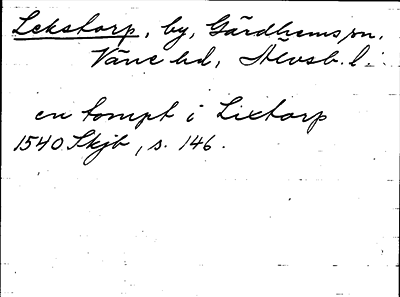 Lekstorp, by, Gärdhems sn.
Väne hd, Älvsb. l.
en tompt i Lixtorp
1540 Skjb, s. 146.